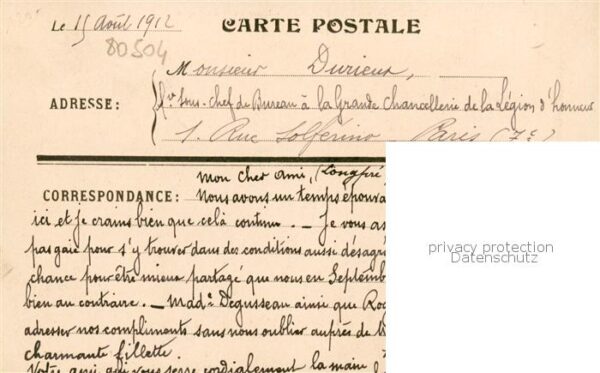 Le 15 Août 1912
CARTE POSTALE
80504
Monsieur Durieux,
ADRESSE: Sous-chef de Bureau à la Grande Chancellerie de la Légion d'honneur
1. Rue Solférino - Paris (7e)
mon cher ami, (Longpré
CORRESPONDANCE: Nous avons un temps épouva
ici et je crains bien que celà continue. - Je vous as
pas gaie pour s'y trouver dans des conditions aussi désagré
chance pour être mieux partagé que nous en Septemb
bien au contraire. - Made Degusseau ainsi que
adresser nos compliments sans nous oublier auprès de
charmante fillette.
Votre ami qui vous serre cordialement la main
privacy protection
Datenschutz